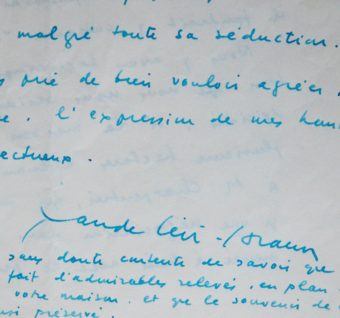 malgré toute sa séduction.
prié de bien vouloir agréer,
l'expression de mes hom
ectueux.
Claude Lévi-Strauss
sans doute contente de savoir que
fait d'admirables relevés, en plan
votre maison, et que le souvenir de
nsi préservé.